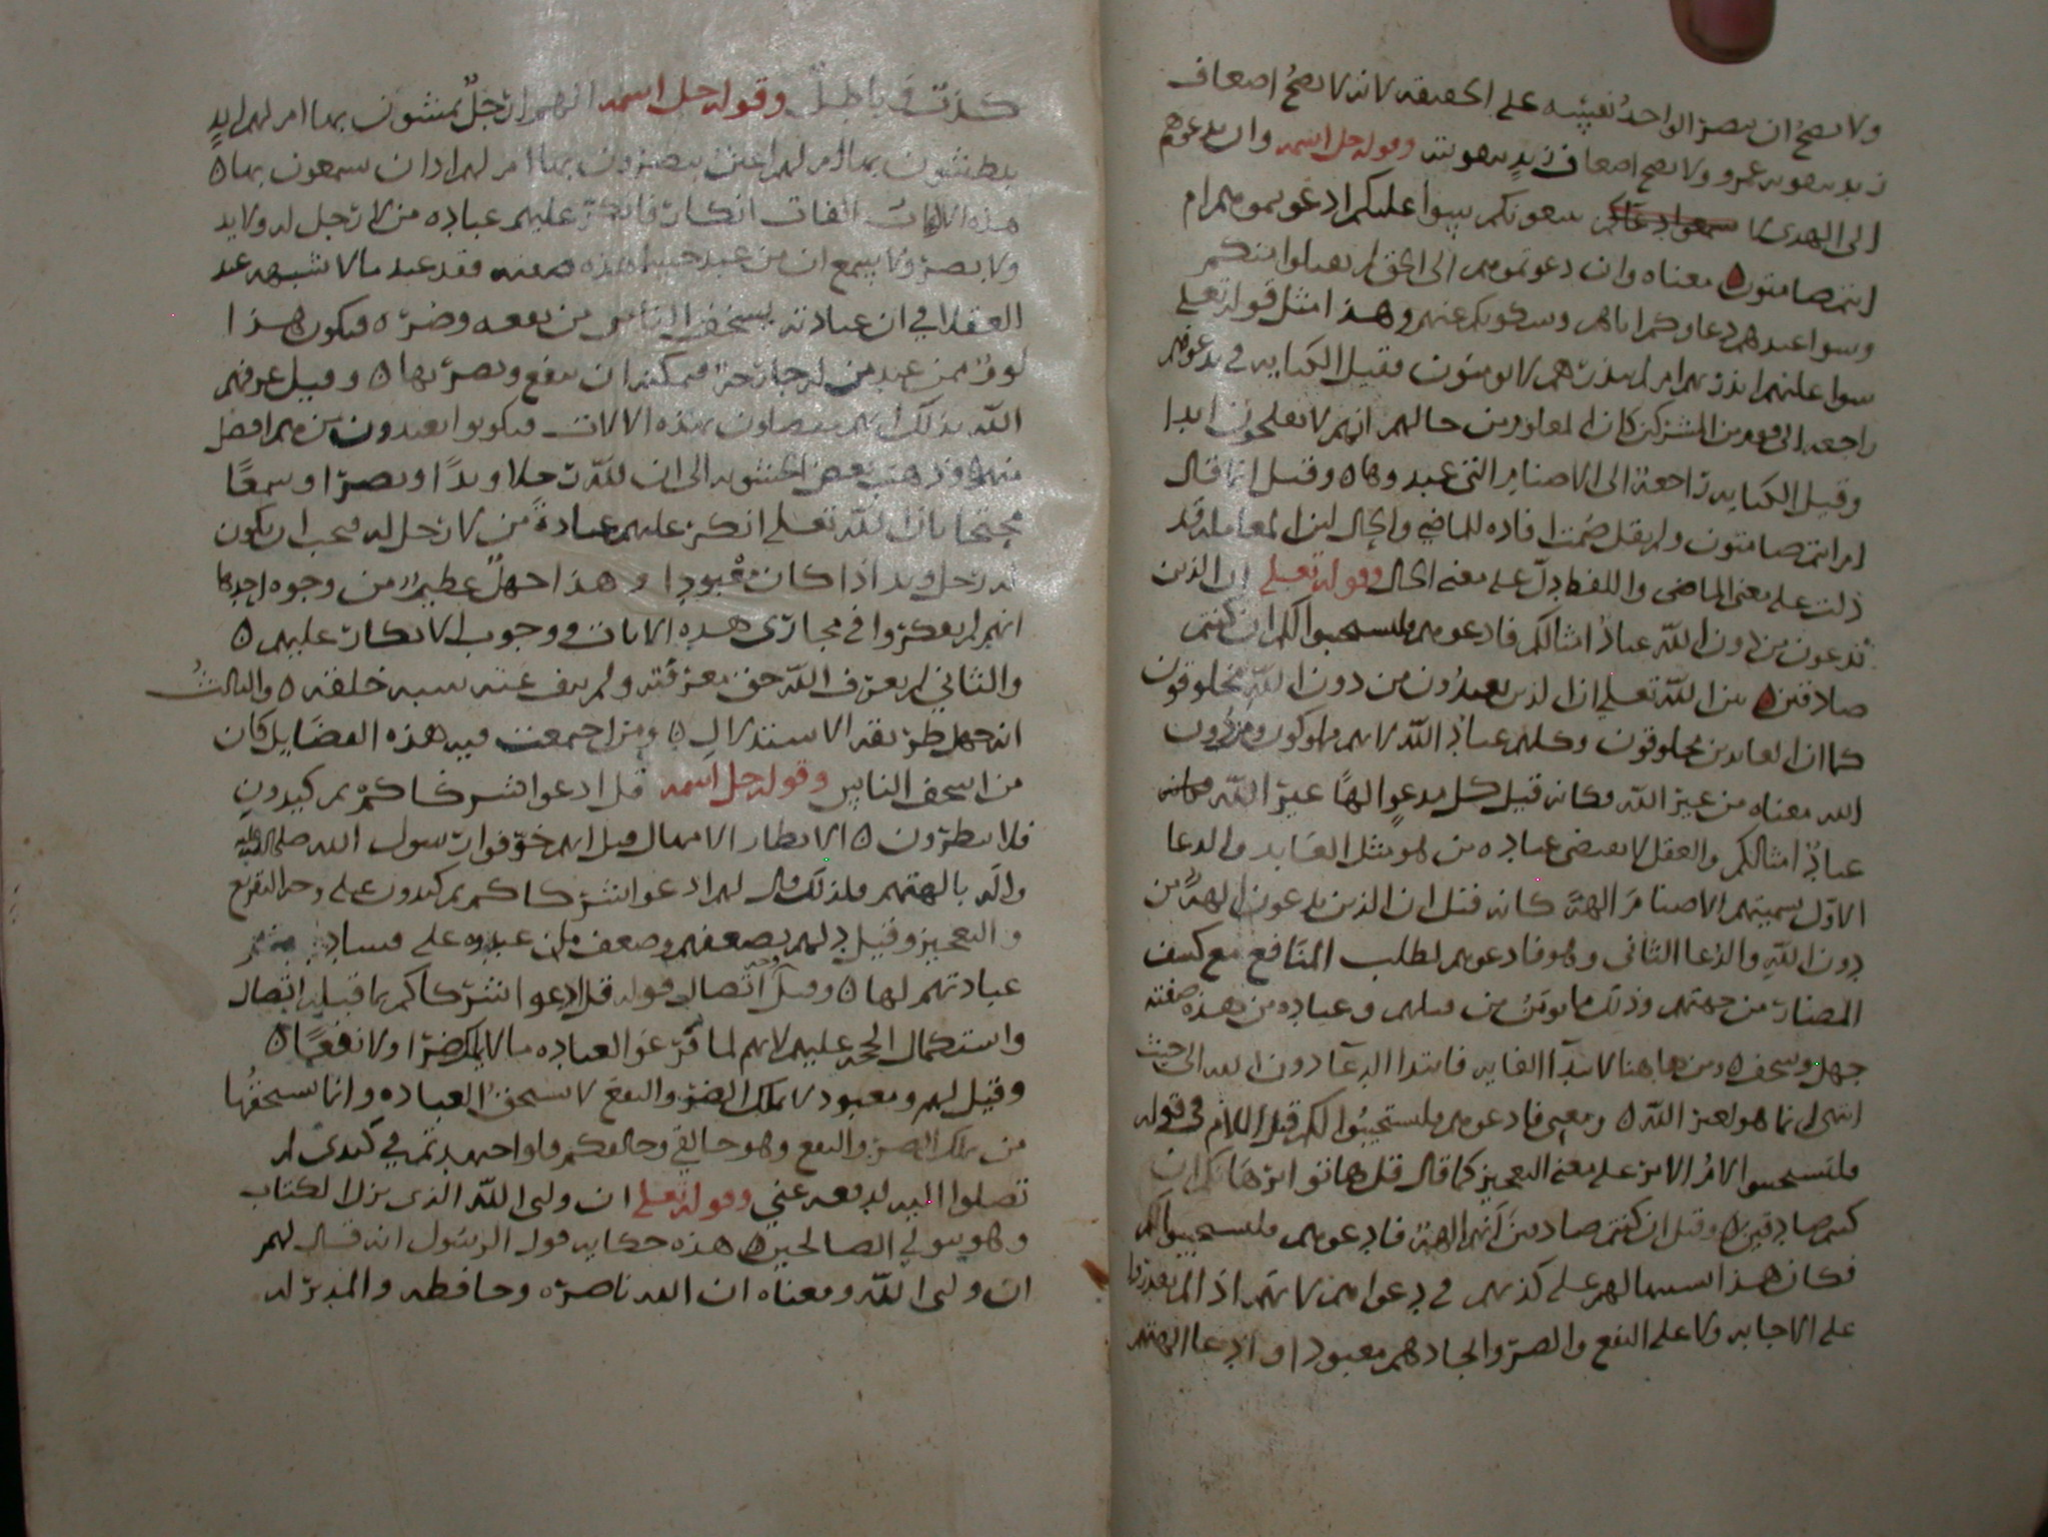 ولا يصح ان ينصر الواحد نفسه على الحقيقه لانه لا يصح اضعاف
زيد بتقويه عمرو ولا يصح اضعاف زيد بتقويته وقوله جل اسمه وان تدعوهم
الى الهدى لا يتبعوكم سوا عليكم ادعوتموهم ام
انتم صامتون معناه وان دعوتموهم الى الحق لم يقبلوا منكم
وسوا عندهم دعاوكم اياهم وسكوتكم عنهم وهذا مثل قوله تعلى
سوا عليهم انذرتهم ام لم تنذرهم لا يومنون فقيل الكنايه في تدعوهم
راجعه الى قوم من المشركين كان المعلوم من حالهم انهم لا يفلحون ابدا
وقيل الكنايه راجعة الى الاصنام التي عبدوها وقيل انما قال
ام انتم صامتون ولم يقل صمتم لافاده الماضي والحال لان المقابله قد
دلت على معنى الماضي واللفظ يدل على معنى الحال وقوله تعلى ان الذين
تدعون من دون الله عباد امثالكم فادعوهم فليستجيبوا لكم ان كنتم
صادقين بين الله تعلى ان الذين يعبدون من دون الله مخلوقون
كما ان العابدين مخلوقون وكلهم عباد الله لانهم مملوكون ومن دون
الله معناه من غير الله فكانه قيل كل مدعو الها غير الله
عباد امثالكم والعقل لا يقتضي عباده من هو مثل العابد والدعا
الاول تسميتهم الاصنام الهة كانه قيل ان الذين يدعون الهة من
دون الله والدعا الثاني وهو فادعوهم لطلب المنافع مع كشف
المضار من جهتهم وذلك مايوس من قبلهم وعباده من هذه صفته
جهل وسخف ومن هاهنا لابتدا الغايه فابتدا الدعا دون الله الى حيث
انتهى انما هو لغير الله ومعنى فادعوهم فليستجيبوا لكم قيل اللام في قوله
فليستجيبوا لام الامر على معنى التعجيز كما قال قل هاتوا برهانكم ان
كنتم صادقين وقيل ان كنتم صادقين انهم الهة فادعوهم فليستجيبوا لكم
فكان هذا على كذبهم في دعواهم لانهم اذا لم يقدروا
على الاجابه ولا على النفع والضر واتخاذهم معبودا وادعا الهتهم
كذب وباطل وقوله جل اسمه الهم ارجل يمشون بها ام لهم ايد
يبطشون بها ام لهم اعين يبصرون بها ام لهم اذان يسمعون بها
هذه الالفات الفات انكار فانكر عليهم عباده من لا رجل له ولا يد
ولا بصر ولا يسمع ان من عبد جسما هذه صفته فقد عبد ما لا شبهه عند
العقلا في ان عبادته يسخف الناس من نفعه وضره فيكون هذا
لوم من عبد من له جارحة فيمكنه ان ينفع ويضر بها وقيل عرفهم
الله بذلك انهم مفضلون بهذه الالات فيكونوا يعبدون من هم افضل
منهم وذهب بعض الحشويه الى ان لله رجلا ويدا وبصرا وسمعا
محتجا بان الله تعلى انكر عليهم عبادة من لا رجل له فيجب ان يكون
له رجل ويد اذا كان معبودا وهذا جهل عظيم من وجوه احدها
انهم لم يفكروا في مجازى هذه الايات ووجوب الانكار عليهم
والثاني لم يعرف الله حق معرفته ولم ينف عنه شبه خلقه والثالث
انه جهل طريقه الاستدلال ومن اجتمعت فيه هذه الفضايل كان
من اسخف الناس وقوله جل اسمه قل ادعوا شركاكم ثم كيدون
فلا تنظرون الانظار الامهال قيل انهم خوفوا رسول الله صلى الله عليه
واله بالهتهم فلذلك قال لهم ادعوا شركاكم ثم كيدون على وجه التقريع
والتعجيز وقيل دلهم بضعفهم وضعف من عبدوه على فساد
عبادتهم لها وقيل وجه اتصال قوله قل ادعوا شركاكم بما قبله اتصال
واستكمال الحجه عليهم لانهم لما قرعوا لعباده ما لا يملك ضرا ولا نفعا
وقيل لهم ومعبود لا يملك الضر والنفع لا يستحق العباده وانما يستحقها
من يملك الضر والنفع وهو خالقي وخالقكم فلو اجتهدتم في كيدى لم
تصلوا اليه لدفعه عني وقوله تعلى ان وليى الله الذى نزل الكتاب
وهو يتولى الصالحين هذه حكايه قول الرسول انه قال لهم
ان وليى الله ومعناه ان الله ناصره وحافظه والمدبر له